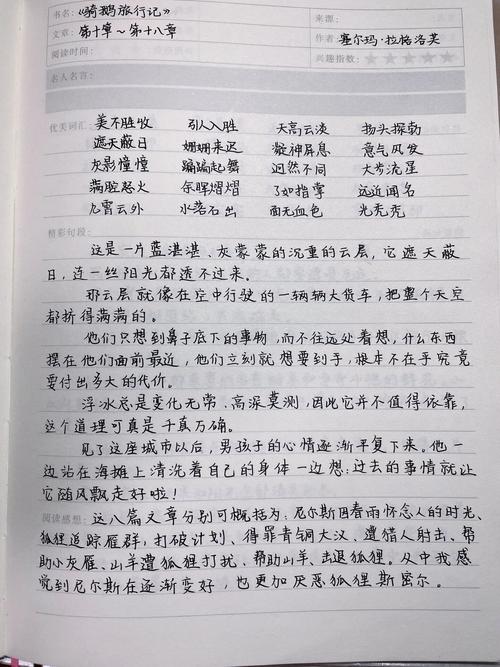 书名：《骑鹅旅行记》 来源：
文章：第十章～第十八章 作者：塞尔玛·拉格洛芙
阅读时间： 兴趣指数：★★★★★
名人名言：
优美词汇： 美不胜收 引人入胜 天高云淡 探头探勃
遮天蔽日 姗姗来迟 凝神屏息 意气风发
灰影憧憧 蹁跹起舞 迥然不同 大步流星
满腔怒火 余晖熠熠 了如指掌 远近闻名
九霄云外 水落石出 面无血色 光秃秃
精彩句段：
这是一片蓝湛湛、灰蒙蒙的沉重的云层，它遮天蔽
日，连一丝阳光都透不过来。
那云层就像在空中行驶的一辆辆大货车，把整个天空
都挤得满满的。
他们只想到鼻子底下的事物，而不往远处着想，什么东西
摆在他们面前最近，他们立刻就想要到手，根本不在乎究竟
要付出多大的代价。
浮冰总是变化无常、高深莫测，因此它并不值得依靠，
这个道理可真是千真万确。
见了这座城市以后，男孩子的心情逐渐平复下来。他一
边站在海摊上清洗着自己的身体一边想：过去的事情就让
它随风飘走好啦！
阅读感想：这八篇文章分别可概括为：尼尔斯因春雨怀念人的时光、
狐狸追踪雁群，打破计划、得罪青铜大汉、遭猎人射击、帮
助小灰雁、山羊遭狐狸打扰，帮助山羊、击退狐狸。从中我感
觉到尼尔斯在逐渐变好，也更加厌恶狐狸斯密尔。